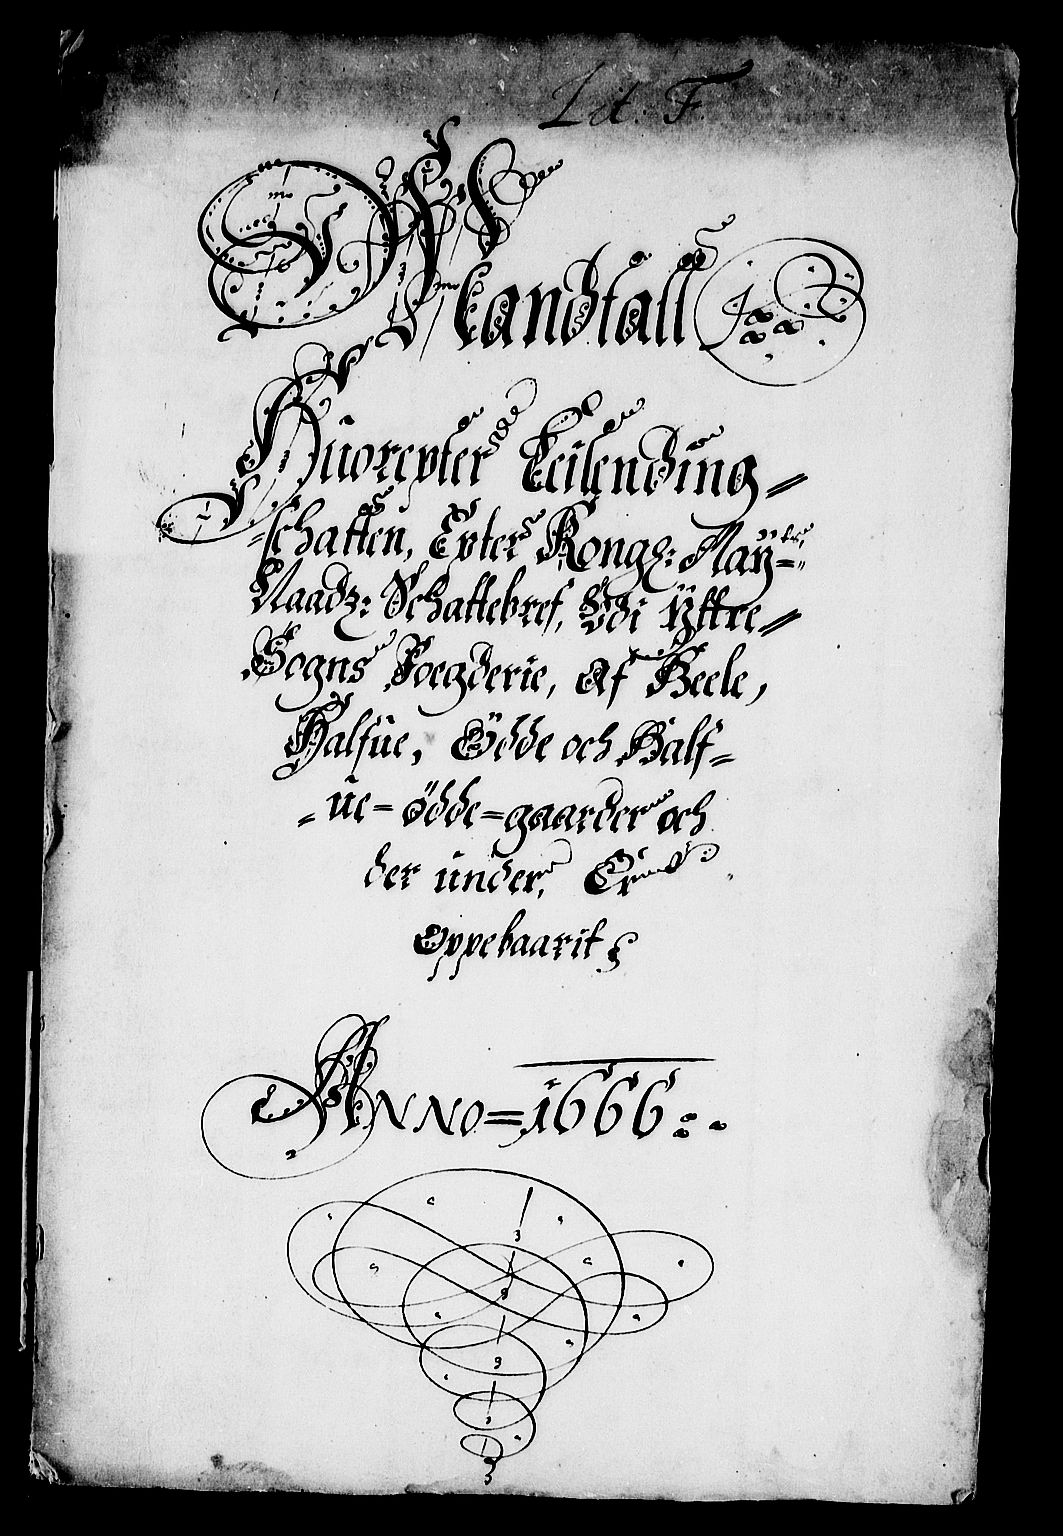 Lit. F.
Mandtall
Huorepter Leilending=
=schatten, Epter Kongl: May=tz
Naadz: Schattebref, Udi Ÿttre=
Sogns Foegderie, Af Heele,
Halfue, Ödde och Half=
=ue=ödde=gaarder och
der under, Er
Oppebaarit
ANNO=1666